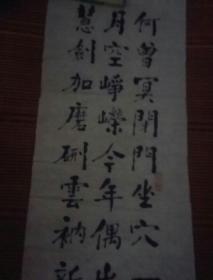 何曾冥閉門坐穴一
月空崢嶸今年偶出
慧劍加磨硎雲衲新